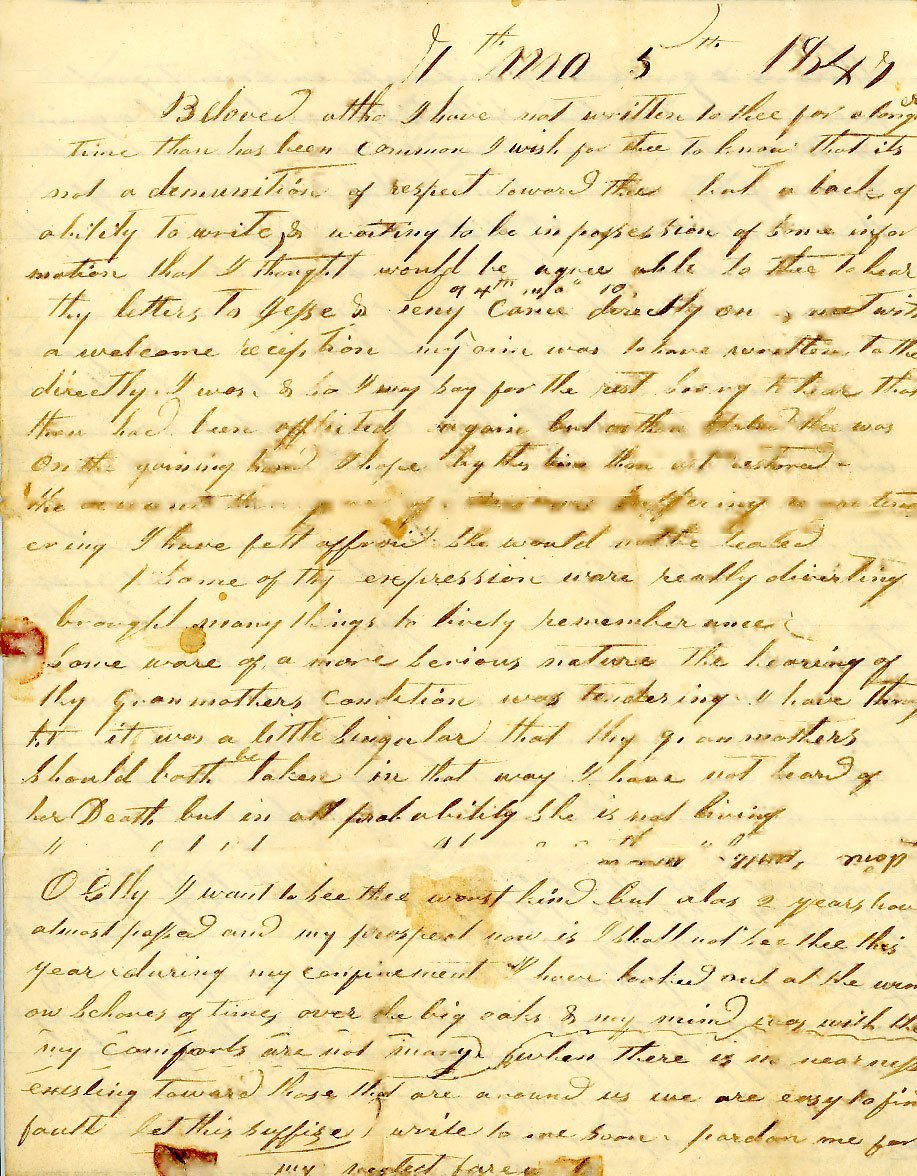 mo 5th 184
Beloved altho I have not written to thee for a longer
time than has been common I wish for thee to know that its
not a demunition of respect toward thee but a lack of
ability to write, & waiting to be in possession of some infor
mation that I thought would be agree able to thee to hear
of 4th mo 10
thy letters to Jesse & came directly on, met with
a welcome reception my aim was to have written to thee
directly I was & so I may say for the rest sorry to hear that
thou had been afflicted again but as thou stated thee was
on the gaining hand I hope by this time thou art restored
the suffering
ering I have felt affraid she would not be healed
Some of thy expression ware really diverting
brought many things to lively remember ance
Some ware of a more serious nature the hearing of
thy granmothers condition was tendering I have thoug
ht it was a little singular that thy granmothers
should both be taken in that way I have not heard of
her Death but in all probability she is not living
O Elly I want to see thee worst kind but alas 2 years have
almost passed and my prospect now is I shall not see thee this
year during my confinement I have looked out at the win
ow of times over the big oaks & my mind was with thee
my comforts are not many when there is no nearness
existing toward those that are around us we are easy to fin
fault let this suffize write to me soon pardon me for
my neglect